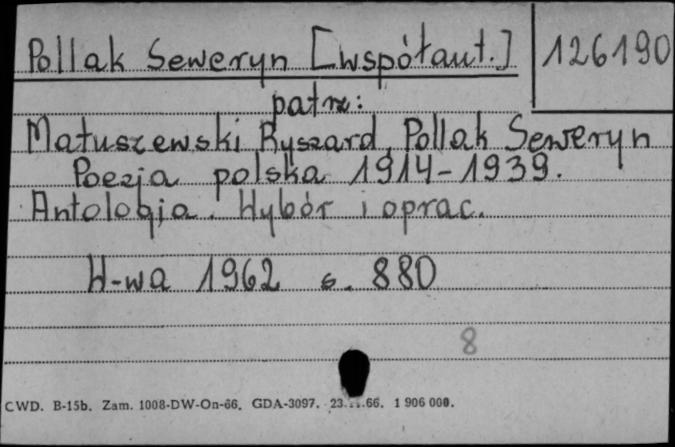 Pollak Seweryn [współaut.] 126190
patrz:
Matuszewski Ryszard, Pollak Seweryn
Poezja polska 1914-1939.
Antologia. Wybór i oprac.
W-wa 1962 s. 880
8
CWD. B-15b. Zam. 1008-DW-On-66. GDA-3097. 1 906 000.